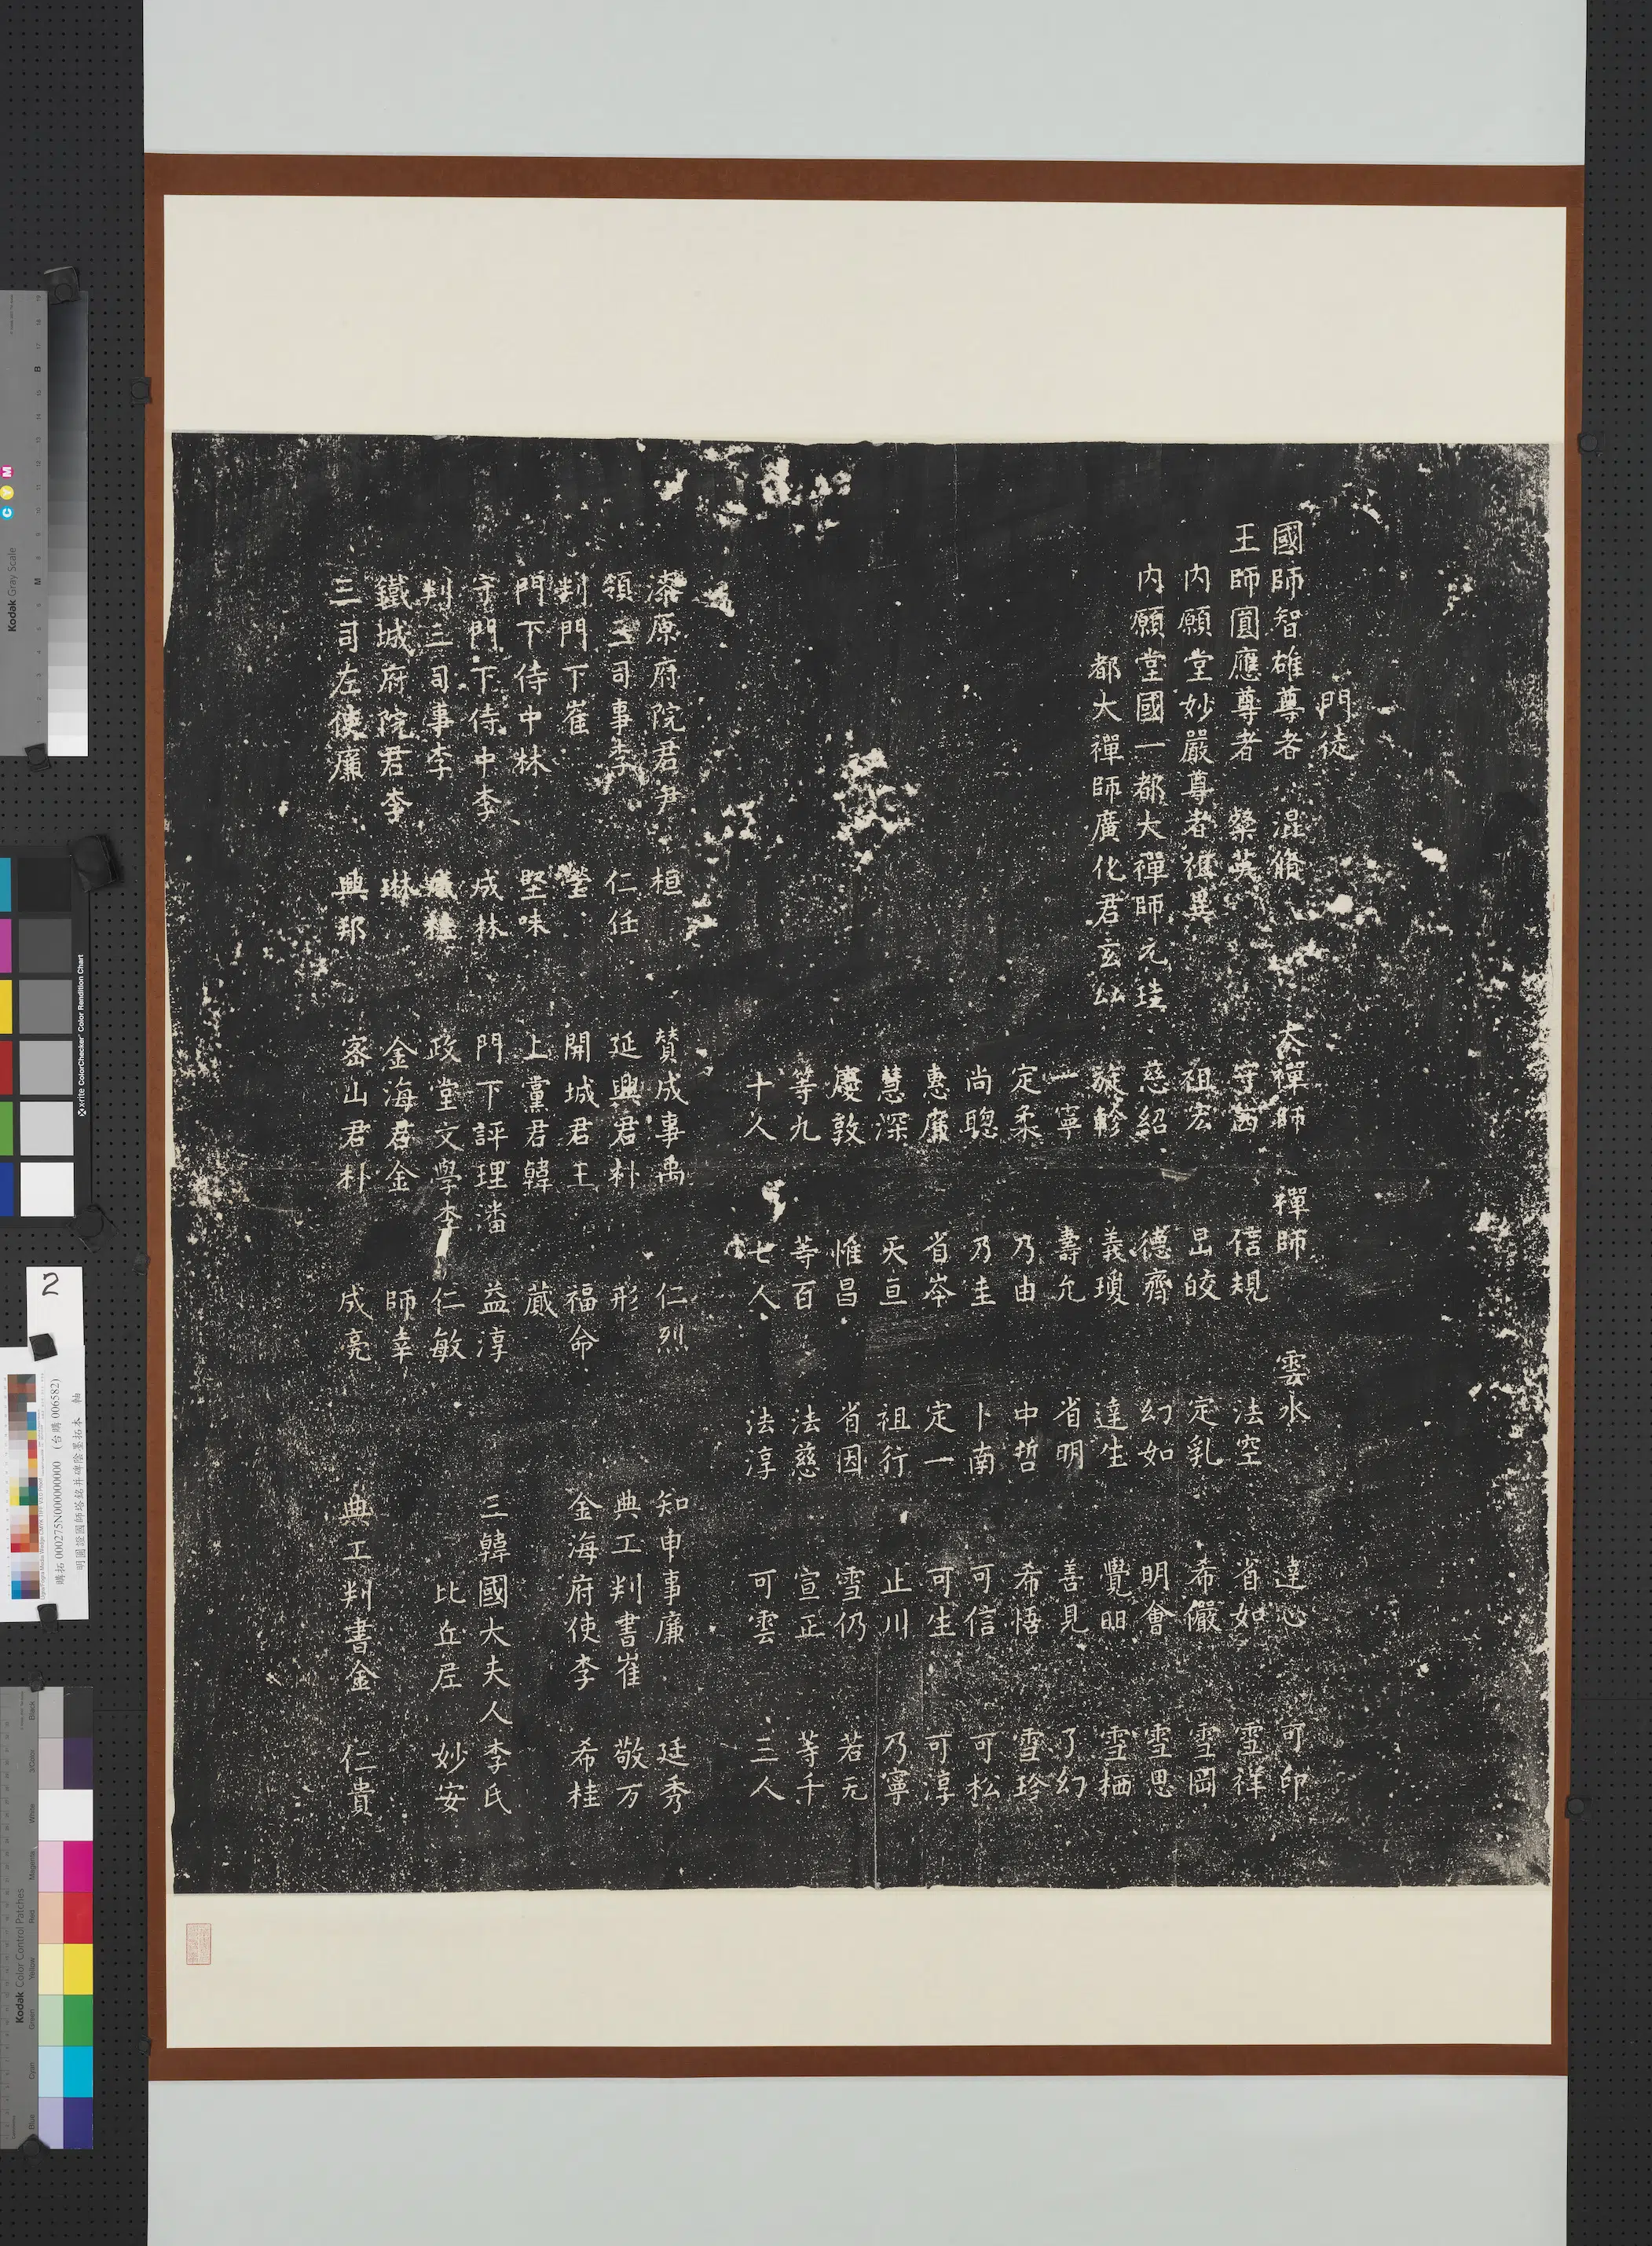 門徒
國師智雄尊者 混脩 大禪師 禪師 雲水 達心 可印
王師圓應尊者 粲英 守 信規 法空 省如 雪祥
內願堂妙嚴尊者 異 祖宏 旵皎 定乳 希儼 雪岡
內願堂國一都大禪師元珪 慈紹 德齊 幻如 明會 雪思
都大禪師廣化君玄 旋軫 義瓊 達生 覺明 雪栖
一寧 壽允 省明 善見 了幻
定柔 乃由 中哲 希悟 雪珍
尚聦 乃圭 卜南 可信 可松
惠廉 省岑 定一 可生 可淳
慧深 天亘 祖行 止川 乃寧
慶敦 惟昌 省因 雪仍 若无
等九 等百 法慈 宣正 等千
十人 七人 法淳 可雲 三人
漆原府院君尹 桓 贊成事禹 仁烈 知申事廉 廷秀
領三司事李 仁任 延興君朴 形 典工判書崔 敬万
判門下崔 瑩 開城君王 福命 金海府使李 希桂
門下侍中林 堅味 上黨君韓 蕆
守門下侍中李 成林 門下評理潘 益淳 三韓國大夫人李氏
判三司事李 成桂 政堂文學李 仁敏 比丘尼 妙安
鐵城府院君李 琳 金海君金 師幸
三司左使廉 興邦 密山君朴 成亮 典工判書金 仁貴
Kodak Gray Scale
C Y M
x-rite ColorChecker Color Rendition Chart
2
購拓 000275N000000000 (台購 006582)
明圓證國師塔銘并碑陰墨拓本 軸
Kodak Color Control Patches
Blue Cyan Green Yellow Red Magenta White 3/Color Black